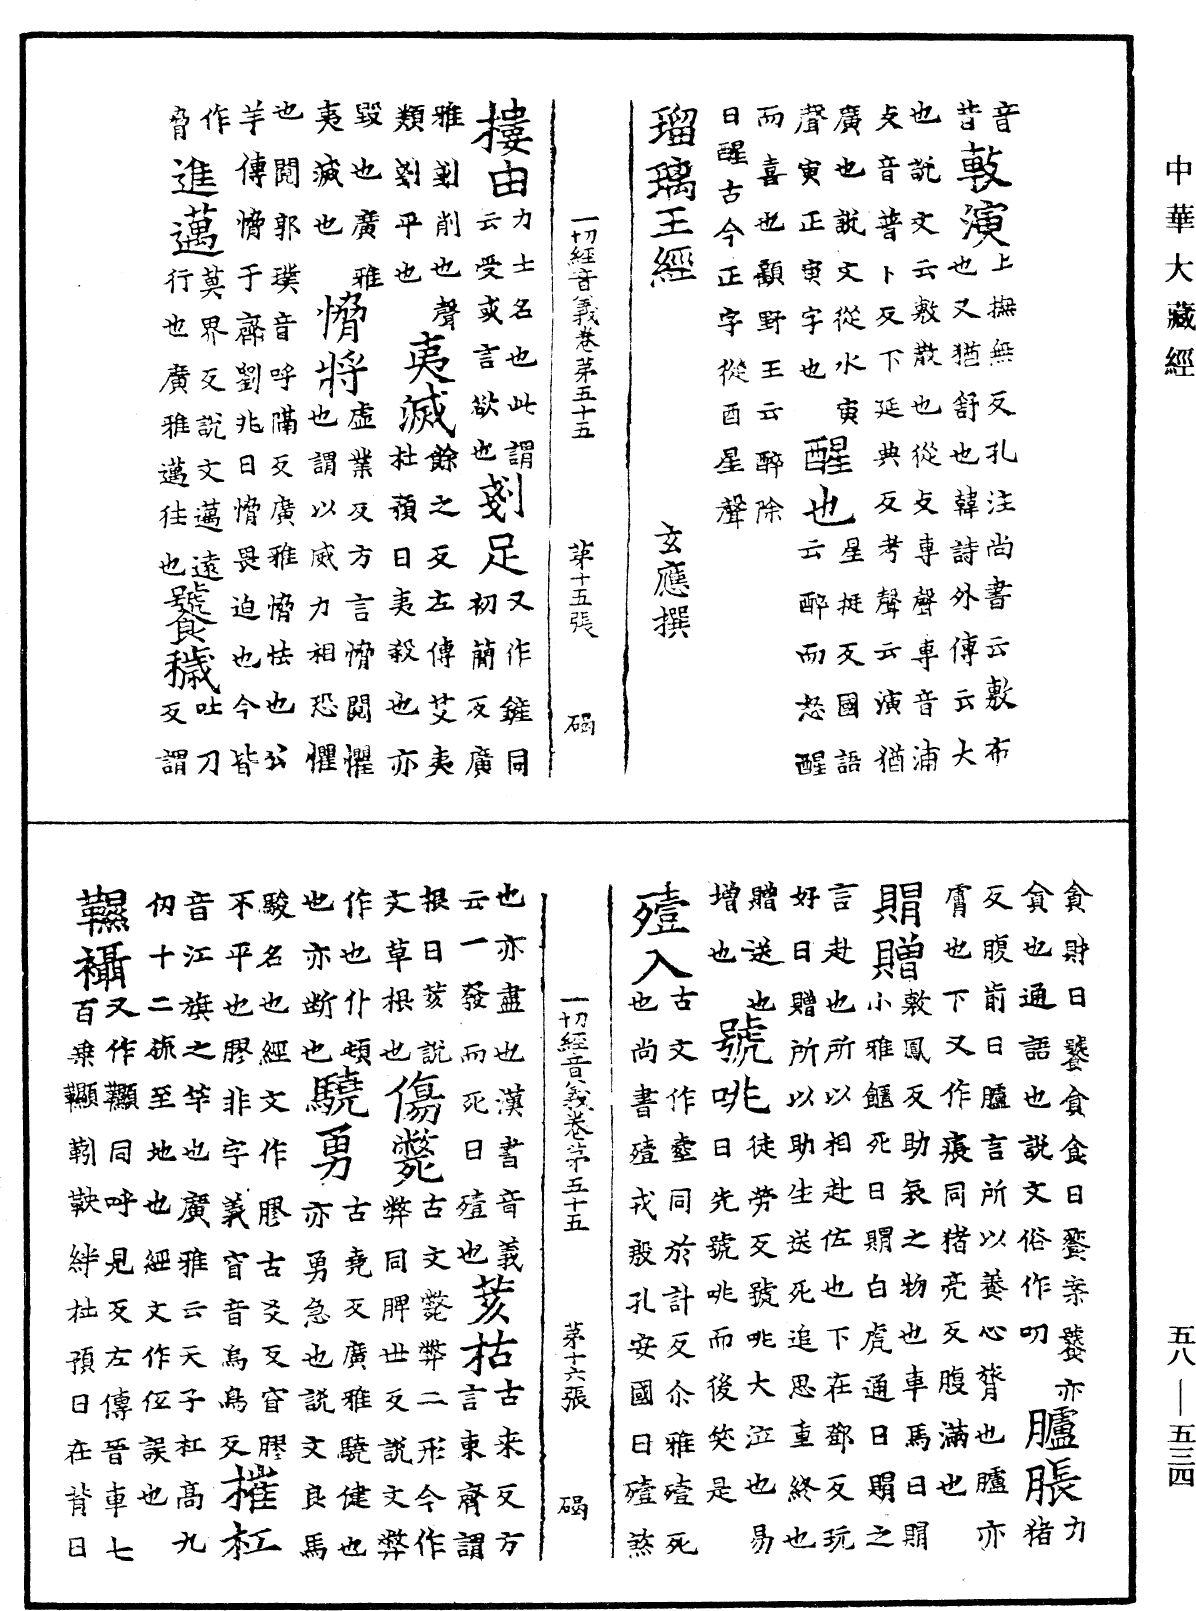 中華大藏經
音
皆敷演上撫無反孔注尚書云敷布
也又猶舒也韓詩外傳云大
也說文云敷散也從攴專聲專音浦
攴音普卜反下延典反考聲云演猶
廣也說文從水寅
聲寅正寅字也醒也星挺反國語
云醉而怒醒
而喜也顧野王云醉除
日醒古今正字從酉星聲
瑠璃王經 玄應撰
一切經音義卷第五十五 第十五張 碣
摟由力士名也此謂
云受或言欲也剗足又作鏟同
初簡反廣
雅剗削也聲
類剗平也夷滅餘之反左傳艾夷
杜預曰夷殺也亦
毀也廣雅
夷滅也脅將虛業反方言脅閱懼
也謂以威力相恐懼
也閱郭璞音呼隔反廣雅脅怯也公
羊傳脅于齊劉兆曰脅畏迫也今皆
作
脅進邁莫界反說文邁遠
行也廣雅邁往也饕穢吐刀
反謂
貪財曰饕貪食曰餮案饕亦
貪也通語也說文俗作叨臚脹力
猪
反腹前曰臚言所以養心膂也臚亦
膚也下又作痮同猪亮反腹滿也
賵贈敷鳳反助喪之物也車馬曰賵
小雅饋死曰賵白虎通曰賵之
言赴也所以相赴佐也下在鄧反玩
好曰贈所以助生送死追思重終也
贈送也
增也號咷徒勞反號咷大泣也易
曰先號咷而後笑是
殪入古文作壹同於計反尒雅殪死
也尚書殪戎殷孔安國曰殪煞
一切經音義卷第五十五 第十六張 碣
也亦盡也漢書音義
云一發而死曰殪也荄枯古来反方
言東齊謂
根曰荄說
文草根也傷斃古文斃弊二形今作
弊同脾世反說文弊
作也仆頓
也亦断也驍勇古堯反廣雅驍健也
亦勇急也說文良馬
駿名也經文作膠古爻反窅膠
不平也膠非字義窅音烏鳥反摧杠
音江旗之竿也廣雅云天子杠高九
仞十二旒至地也經文作伍誤也
韅襵又作䪜同呼見反左傳晉車七
百乘䪜靷鞅絆杜預曰在背曰
五八—五三四